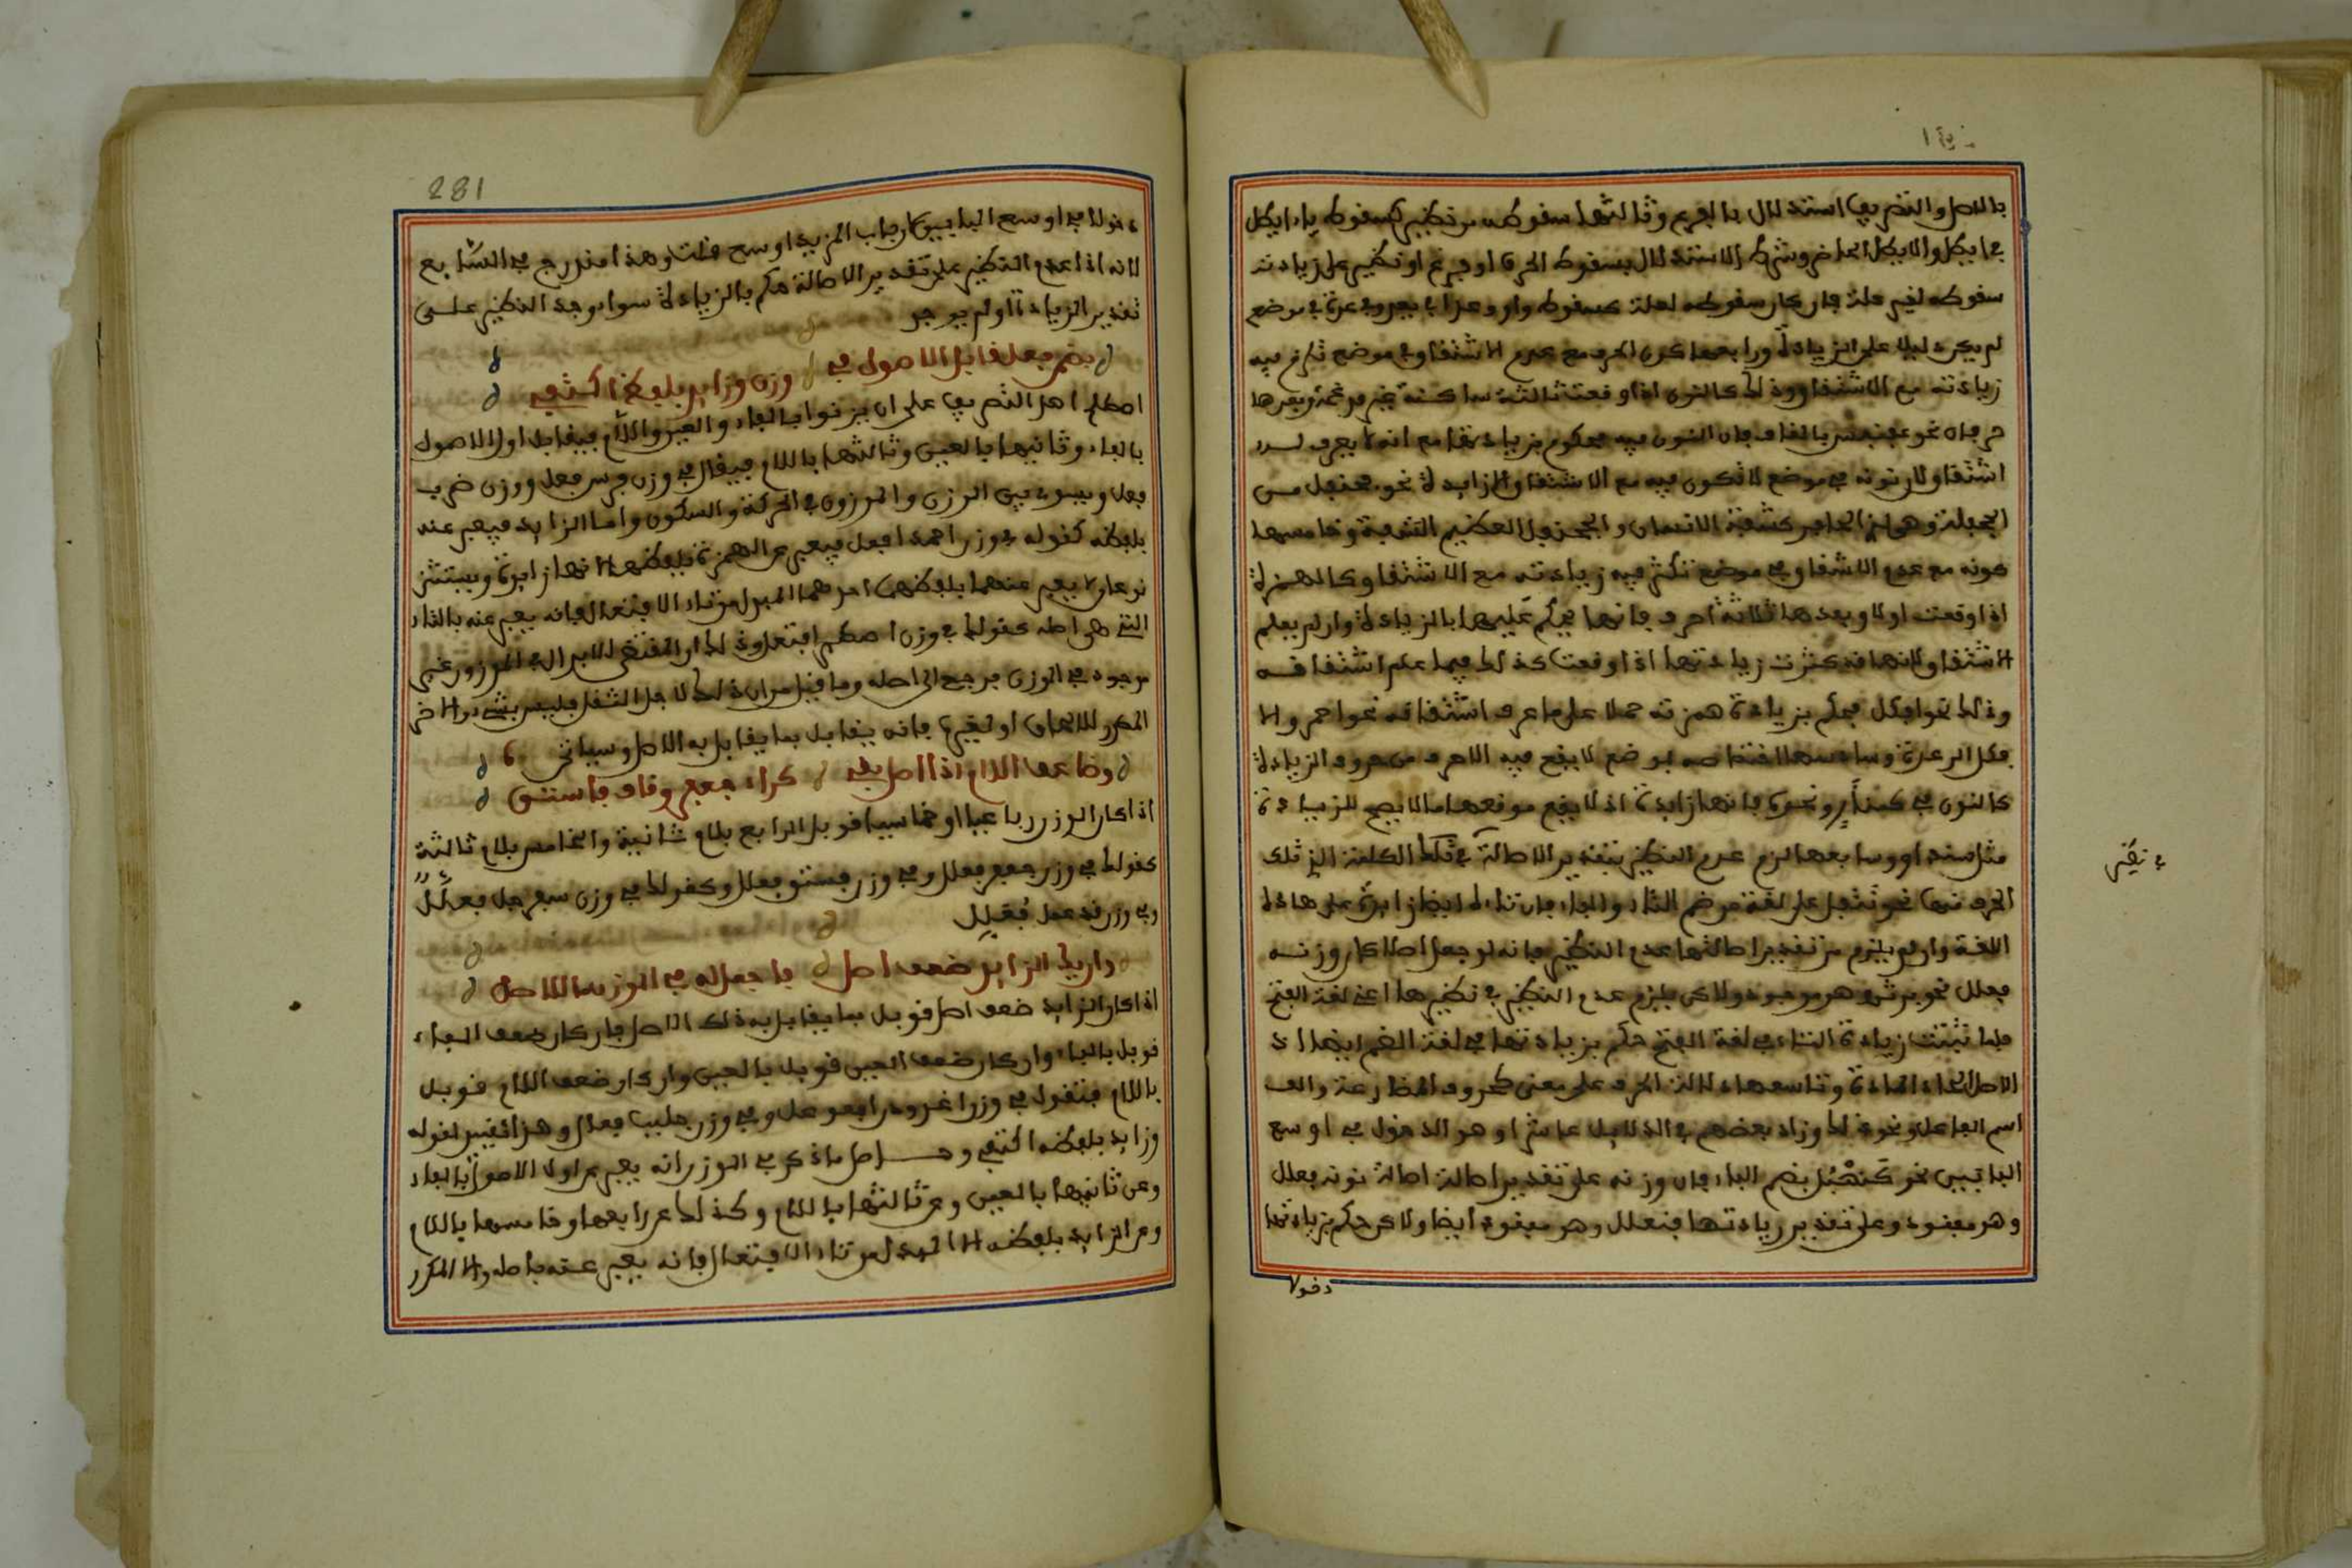 بالاصل والتصريف استدلال بالفرع وثالثها سقوطه من نظير كسقوط ياء ايطل
في ايطل والايطل الخاصرة وشرط الاستدلال بسقوط الحرف من فرع او نظير على زيادته
سقوطه لغير علة فان كان سقوطه لعلة كسقوط واو وعد في يعد وفي عدة في موضع
لم يكن دليلا على الزيادة ورابعها كون الحرف مع عدم الاشتقاق في موضع تلزم فيه
زيادته مع الاشتقاق وذلك كالنون اذا وقعت ثالثة ساكنة غير مدغمة وبعدها
حرفان نحو عقنقس بالقاف فان النون فيه محكوم بزيادتها مع انه لا يعرف لــه
اشتقاق لان نونه في موضع لا تكون فيه مع الاشتقاق الا زايدة نحو جحنفل مـن
الجحفلة وهو لذي الحافر كشفة الانسان والجحنفل العظيم الشفة وخامسها
كونه مع عدم الاشتقاق في موضع تكثر فيه زيادته مع الاشتقاق كالهمزة
اذا وقعت اولا وبعدها ثلاثة احرف فانها يحكم عليها بالزيادة وان لم يعلم
الاشتقاق لانها قد كثرت زيادتها اذا وقعت كذلك فيما علم اشتقاقــه
وذلك نحو افكل يحكم بزيادة همزته حملا على ما عرف اشتقاقه نحو احمر والا
فكل الرعدة وسادسها اختصاصه بموضع لا يقع فيه الا حرف من حروف الزيادة
كالنون في كنتأو ونحوه فانها زايدة اذ لا يقع موقعها ما لا يصح للزيادة
مثل سنداو وسابعها لزوم عدم النظير بتقدير الاصالة في تلك الكلمة التي ذلك
الحرف منها نحو تتفل على لغة من ضم التاء والفاء فان تاءه ايضا زايدة على هاذه
اللغة وان لم يلزم من تقدير اصالتها عدم النظير فانه لو جعل اصلا كان وزنــه
فعلل نحو برثن وهو موجود ولاكن يلزم عدم النظير في نظيرها اعني لغة الفتح
فلما ثبتت زيادة التاء في لغة الفتح حكم بزيادتها في لغة الضم ايضا اذ
الاصل اتحاد المادة وتاسعها دلالة الحرف على معنى كحروف المضارعة والف
اسم الفاعل ونحو ذلك وزاد بعضهم في الدلايل عاشرا وهو الدخول في اوسع
البابين نحو كنهبل بضم الباء فان وزنه على تقدير اصالة نونه فعلل
وهو مفقود وعلى تقدير زيادتها فنعلل وهو مفقود ايضا ولاكن حكم بزيادتها
دخولا
في نظير
281
دخولا في اوسع البابين لان باب المزيد اوسع قلت وهذا مندرج في السابع
لانه اذا عدم النظير على تقدير الاصالة حكم بالزيادة سوا وجد النظير علـى
تقدير الزيادة او لم يوجد
بضمن فعل قابل الاصول في وزن وزايد بلفظه اكتفي
اصطلح اهل التصريف على ان يزنوا بالفاء والعين واللام فيقابل اول الاصول
بالفاء وثانيها بالعين وثالثها باللام فيقال في وزن فرس فعل ووزن ضرب
فعل ويسوى بين الوزن والموزون في الحركة والسكون واما الزايد فيعبر عنه
بلفظه كقوله في وزن احمد افعل فيعبر عن الهمزة بلفظها لانها زايدة ويستثنى
نوعان لا يعبر عنهما بلفظهما احدهما المبدل من تاء الافتعال فانه يعبر عنه بالتاء
التي هي اصله كقولك في وزن اصطبر افتعل وذلك ان المقتضي للابدال في الموزون غير
موجود في الوزن فرجع الى اصله وما قيل من ان ذلك لاجل الثقل فليس بشيء والاخر
المكرر للالحاق او لغيره فانه يقابل بما يقابل به الاصل وسياتي
وضاعف اللام اذا اصل بقي كراء جعفر وقاف فستق
اذا كان الوزن رباعيا او خماسيا قوبل الرابع بلام ثانية والخامس بلام ثالثة
كقولك في وزن جعفر فعلل وفي وزن فستق فعلل وكقولك في وزن سفرجل فعلّل
وفي وزن قذعمل فُعَلِّل
وان يك الزايد ضعف اصل فاجعل له في الوزن ما للاصل
اذا كان الزايد ضعف اصل قوبل بما يقابل به ذلك الاصل فان كان ضعف الفاء
قوبل بالفاء وان كان ضعف العين قوبل بالعين وان كان ضعف اللام قوبل
باللام فتقول في وزن اغدودن افعوعل وفي وزن جلبب فعلل وهذا تقييد لقوله
وزايد بلفظه اكتفي وحـاصل ما ذكر في الوزن انه يعبر عن اول الاصول بالفاء
وعن ثانيها بالعين وعن ثالثها باللام وكذلك عن رابعها وخامسها باللام
وعن الزايد بلفظه الا المبدل من تاء الافتعال فانه يعبر عنه باصله والا المكرر